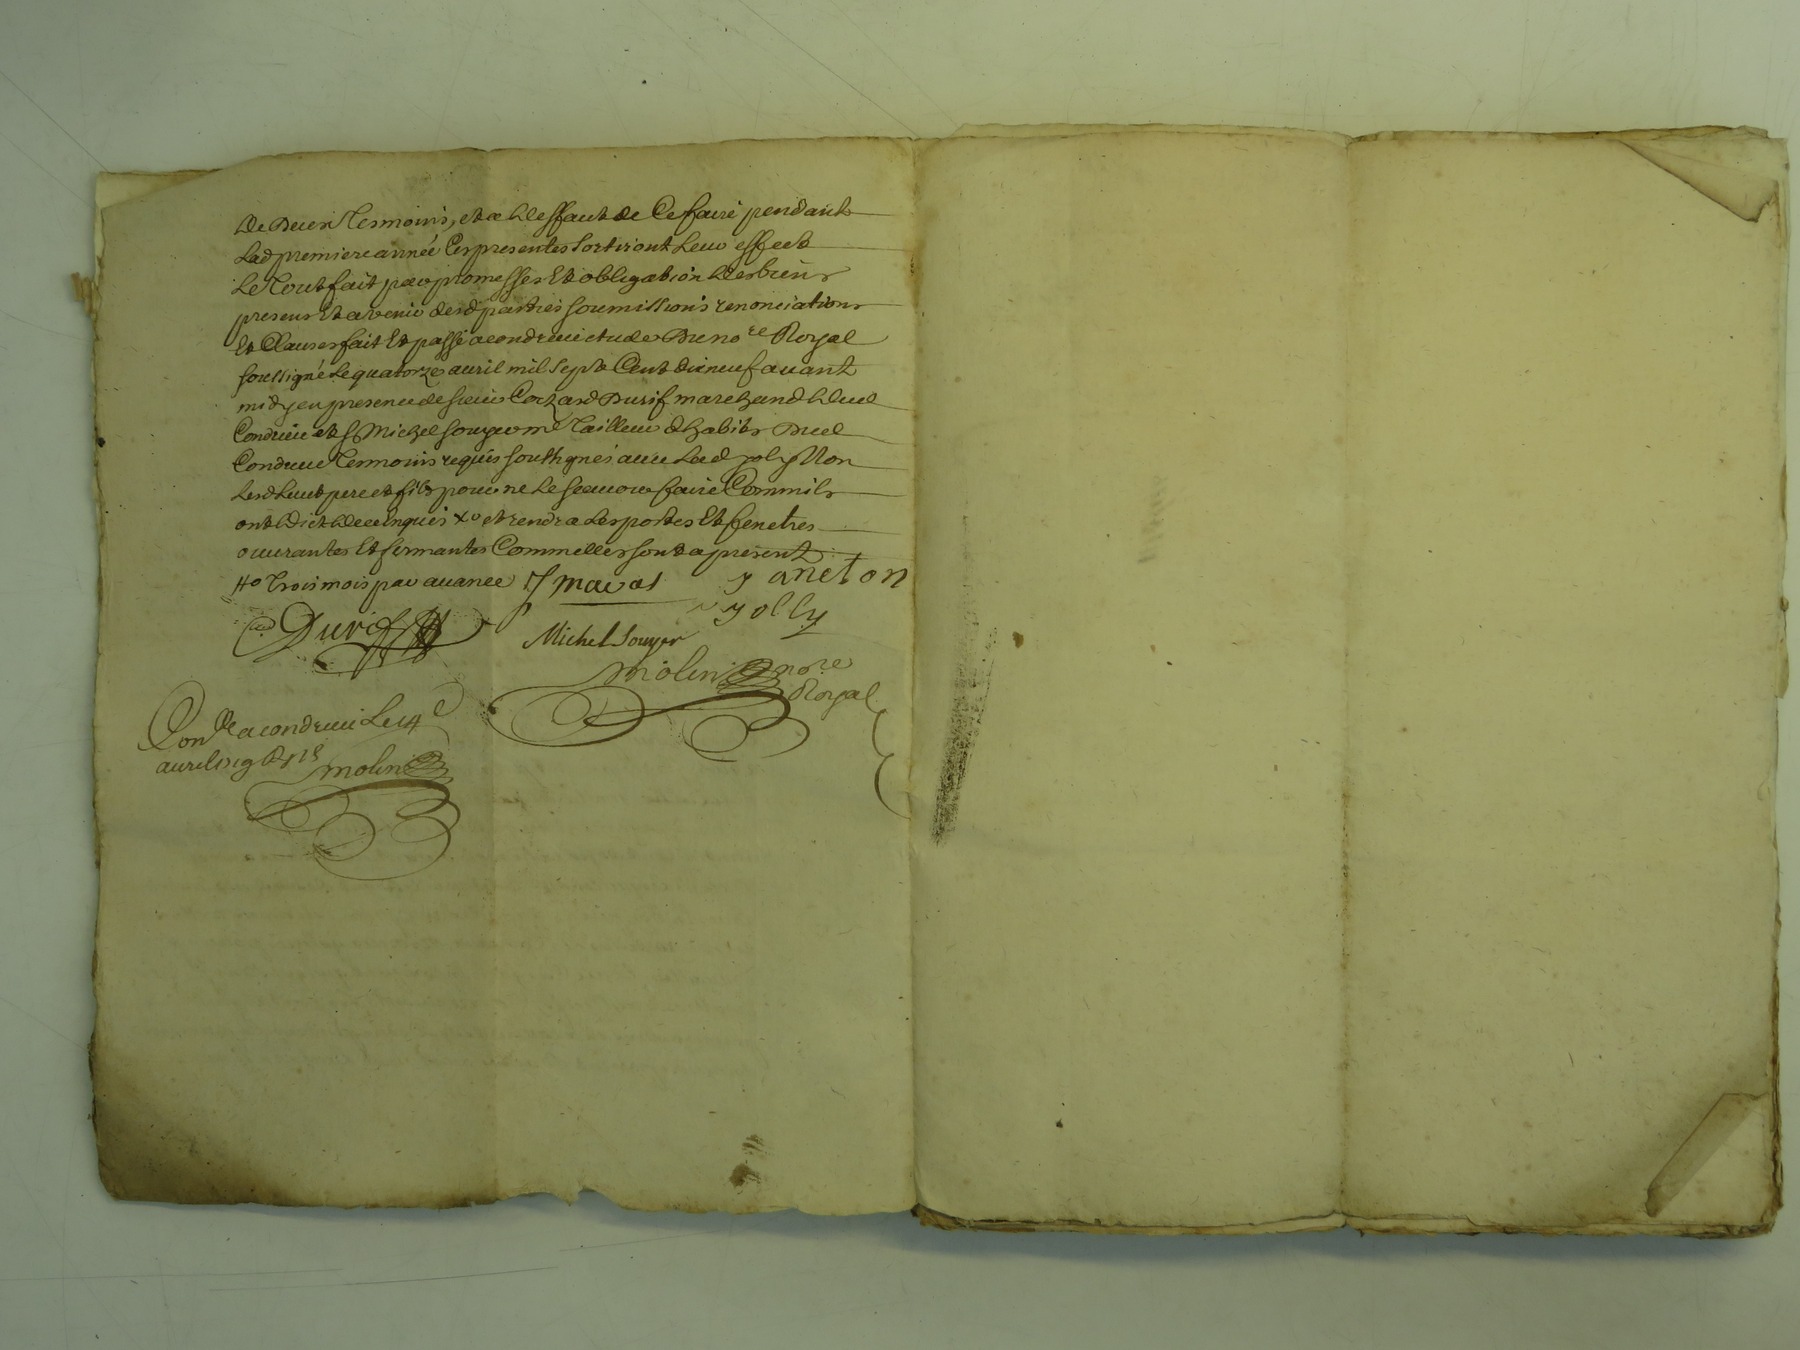 de deux tesmoins, et a deffaut de Ce faire pendant
Lad premiere année Ces presentes sortiront Leur effect
Le Tout fait par promesses Et obligation des biens
presens Et avenir desd parties soumissions renonciations
Et Clauses fait Et passé a condrieu etude du no.re Royal
soussigné Le quatorze auril mil sept Cent dix neuf auant
midy en presence de sieur Durif marchand dud
Condrieu et Sr Michel souyer me Tailleur d'habits dud
Condrieu Tesmoins requis soussignés auec Led joly Non
Lesd pere et fils pour ne Le scauoir faire Comm'ils
ont dict de ce enquis Xo et rendra Les portes Et fenetres
ouurantes Et fermantes Comm'elles sont a present
#o Trois mois par auance
y aneton
Durif
y olly
Michel Souyer
molin no.re
Royal
Con.lé a condrieu Le 14e
auril 1719
molin